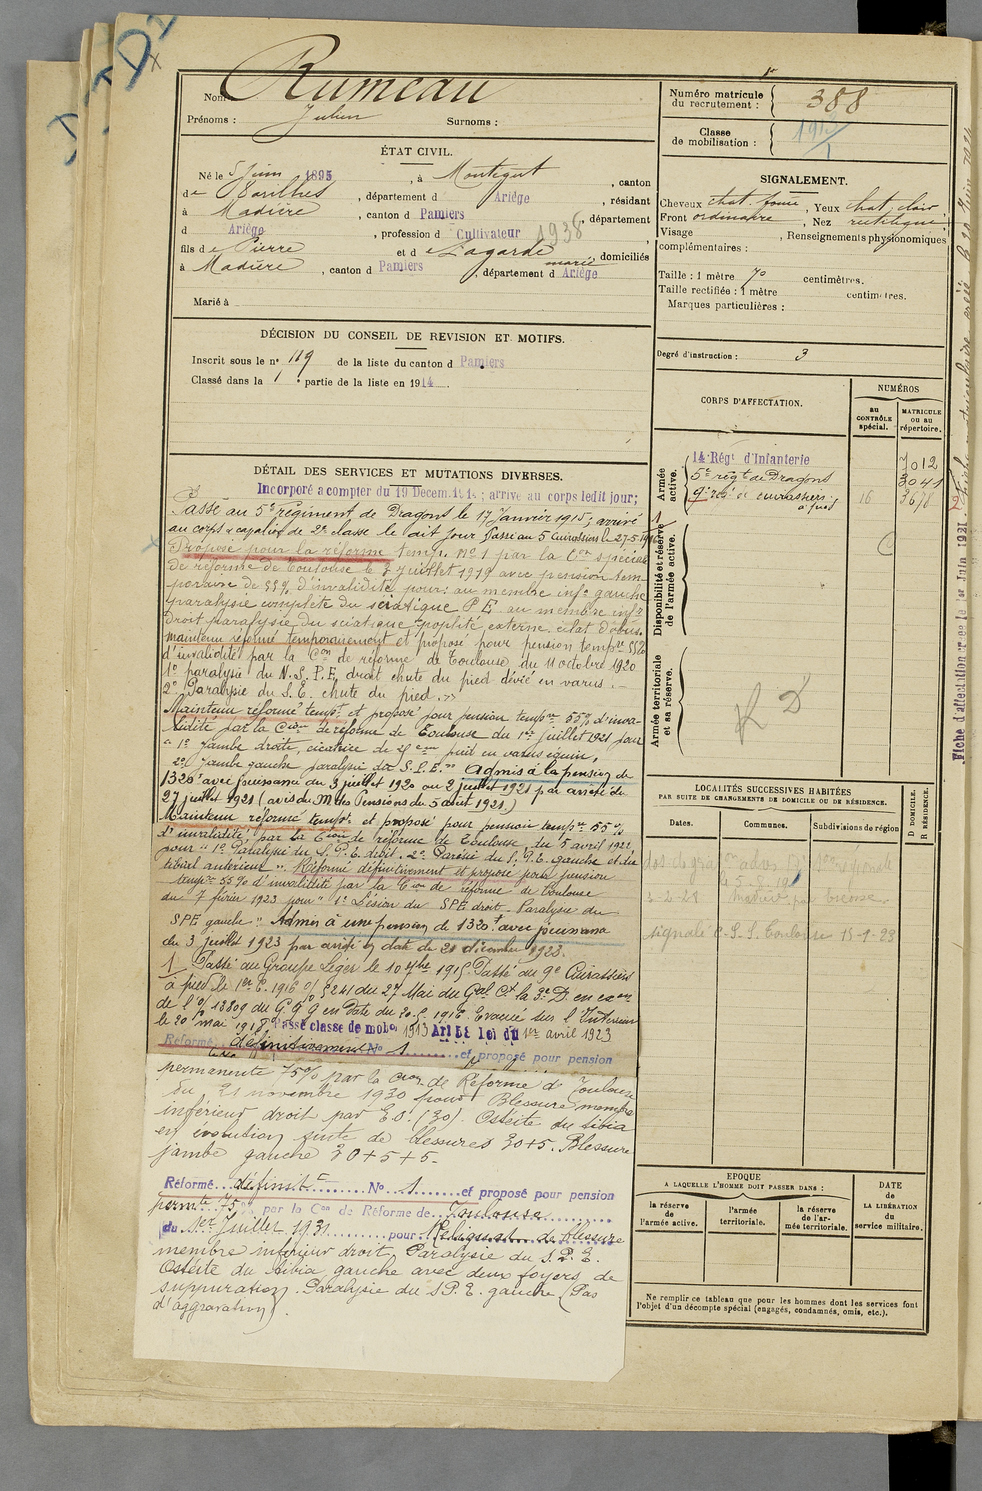 Nom Rumeau
Prénoms : Julien Surnoms :
ÉTAT CIVIL.
Né le 5 juin 1895, à Montégut, canton
de Varilhes, département d Ariège, résidant
à Madière, canton d Pamiers, département
d Ariège, profession d Cultivateur 1938
fils de Pierre et de Lagarde marie, domiciliés
à Madière, canton d Pamiers, département d Ariège
Marié à
DÉCISION DU CONSEIL DE REVISION ET MOTIFS.
Inscrit sous le n° 119 de la liste du canton d Pamiers
Classé dans la 1e partie de la liste en 1914.
DÉTAIL DES SERVICES ET MUTATIONS DIVERSES.
Incorporé a compter du 19 Décem. 1914 ; arrivé au corps ledit jour ;
Passé au 5e régiment de Dragons le 17 Janvier 1915, arrivé
au corps et cavalier de 2e classe le dit jour Passé au 5 Cuirassiers le 27-5-1916
Proposé pour la réforme temp. N° 1 par la Con spéciale
de réforme de Toulouse le 3 juillet 1919 avec pension tem
poraire de 55% d'invalidité pour : au membre infr gauche
paralysie complète du sciatique P E au membre infr
droit paralysie du sciatique poplité externe éclat d'obus.
maintenu réformé temporairement et proposé pour pension tempre 55%
d'invalidité par la Con de réforme de Toulouse du 11 octobre 1920
1° paralysie du N. S. P. E, droit chute du pied dévié en varus. -
2° Paralysie du S. E. chute du pied. »
Maintenu réformé tempt et proposé pour pension tempre 55% d'inva-
lidité par la Cion de réforme de Toulouse du 1er juillet 1921 pour
" 1° Jambe droite, cicatrice de pied en varus équin,
2° Jambe gauche paralysie du S.P.E. " Admis à la pension de
1320f avec jouissance du 3 juillet 1920 au 2 juillet 1921 par arrêté du
27 juillet 1921 (avis du M. des Pensions du 5 août 1921.)
Maintenu réformé tempt et proposé pour pension tempre 55%
d'invalidité par la Cion de réforme de Toulouse, du 5 avril 1922,
pour " 1° Paralysie du S. P. E. droit. 2° Parésie du S. P. E. gauche et du
tibial antérieur ". Réformé définitivement et proposé pour pension
tempre 55% d'invalidité par la Cion de réforme de Toulouse
du 7 février 1923 pour " 1° Lésion du SPE droit. Paralysie du
SPE gauche " Admis à une pension de 1320f avec jouissance
du 3 juillet 1923 par arrêté en date du 21 décembre 1923.
1 Passé au Groupe Léger le 10 1915 Passé au 9e Cuirassiers
à pied le 1er 6. 1916 241 du 27 Mai du Gal Ct la 3e D. en exon
de l 13809 du G Q G en date du 20-5-1916 Evacué sur l'Intérieur
le 20 mai 1918. Passé classe de mobon 1913 Art 58 loi du 1er avril 1923
Réformé définitivement N° 1 et proposé pour pension
permanente 75% par la Cion de Réforme de Toulouse
du 21 novembre 1930 pour Blessure membre
inférieur droit par E.O. (30). Ostéite du tibia
en évolution suite de blessures 30+5. Blessure
jambe gauche 30+5+5.
Réformé définitt N° 1 et proposé pour pension
permte 75% par la Con de Réforme de Toulouse
du 1er Juillet 1931 pour Reliquat de blessure
membre inférieur droit, Paralysie du S.P.E.
Ostéite du tibia gauche avec deux foyers de
suppuration. Paralysie du S P. E. gauche (Pas
d'aggravation).
Numéro matricule du recrutement : 388
Classe de mobilisation : 1913/1
SIGNALEMENT.
Cheveux chat. foncé, Yeux chat. clair
Front ordinaire, Nez rectiligne
Visage , Renseignements physionomiques
complémentaires :
Taille : 1 mètre 70 centimètres.
Taille rectifiée : 1 mètre centimètres.
Marques particulières :
Degré d'instruction : 3
CORPS D'AFFECTATION.
NUMÉROS
au CONTRÔLE spécial.
MATRICULE ou au répertoire.
Armée active.
14e Régt d'Infanterie 7012
5e régt de Dragons 3041
9e régt de cuirassiers à pied 16 3678
Disponibilité et réserve de l'armée active.
Armée territoriale et sa réserve.
R D
LOCALITÉS SUCCESSIVES HABITÉES
PAR SUITE DE CHANGEMENTS DE DOMICILE OU DE RÉSIDENCE.
Dates. Communes. Subdivisions de région
D DOMICILE.
R RÉSIDENCE.
signalé C.S.S. Toulouse 15-1-23
EPOQUE
A LAQUELLE L'HOMME DOIT PASSER DANS :
la réserve de l'armée active.
l'armée territoriale.
la réserve de l'armée territoriale.
DATE de LA LIBÉRATION du service militaire.
Ne remplir ce tableau que pour les hommes dont les services font
l'objet d'un décompte spécial (engagés, condamnés, omis, etc.).
Fiche d'affectation créée le 1er Juin 1921.